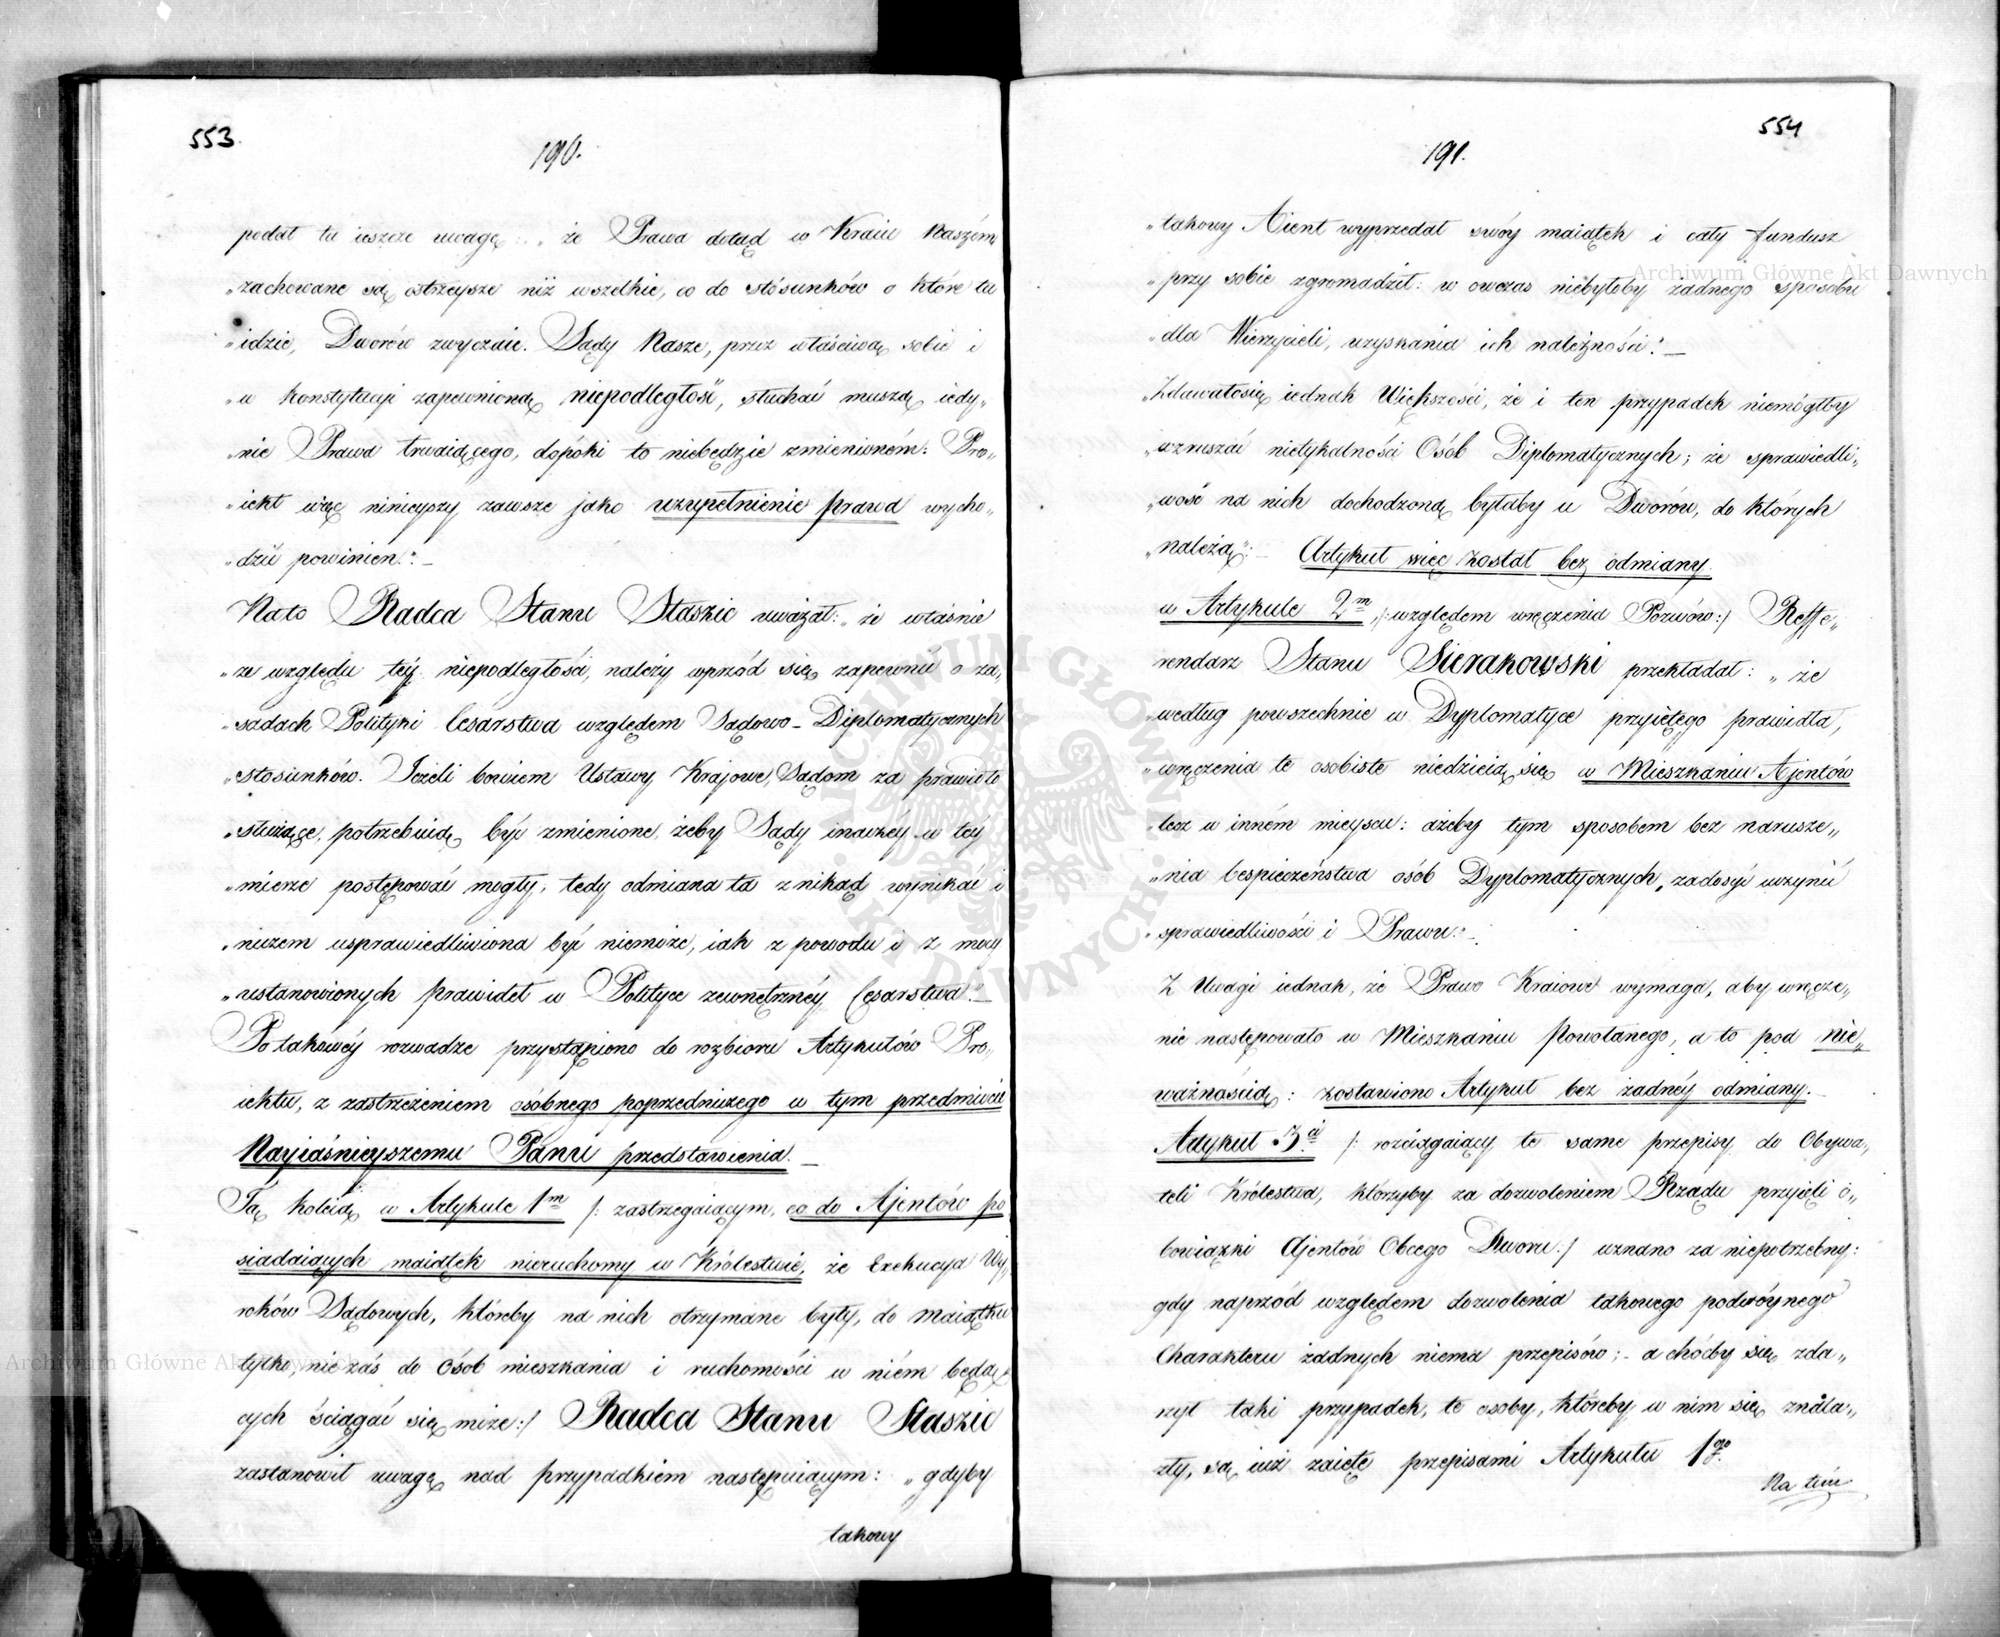 553.
190.
podał tu ieszcze uwagę: „że Prawa dotąd w Kraiu Naszém
„zachowane są ostrzeysze niż wszelkie, co do stósunków o które tu
„idzie, Dworów zwyczaie. Sądy Nasze, przez właściwą sobie i
„w Konstytucyi zapewnioną niepodległość, słuchać muszą iedy„
„nie Prawa trwaiącego, dopóki to niebędzie zmienioném: Pro„
„iekt więc ninieyszy zawsze jako uzupełnienie prawa wycho„
„dzić powinien.": _
Na to Radca Stanu Staszic uważał: „że właśnie
„ze względu téy niepodległości, należy wprzód się zapewnić o za„
„sadach Polityki Cesarstwa względem Sądowo-Diplomatycznych
„stosunków. Jeżeli bowiem Ustawy Krajowe, Sądom za prawidło
„służące, potrzebuią być zmienione, żeby Sądy inaczey w téy
„mierze postępować mogły, tedy odmiana ta znikąd wynikać i
„niczem usprawiedliwiona być niemoże, iak z powodu i z mocy
„ustanowionych prawideł w Polityce zewnętrznéy Cesarstwa". _
Po takowéy rozwadze przystąpiono do rozbioru Artykułów Pro„
iektu, z zastrzeżeniem osóbnego poprzedniczego w tym przedmiocie
Nayiaśnieyszemu Panu przedstawienia. _
Tą koleią w Artykule 1m /: zastrzegaiącym, co do Ajentów po
siadaiących maiątek nieruchomy w Królestwie, że Exekucya Wy„
roków Sądowych, któreby na nich otrzymane były, do maiątku
tylko, nie zaś do osób mieszkania i ruchomości w niém będą
cych ściągać się może:/ Radca Stanu Staszic
zastanowił uwagę nad przypadkiem następuiącym: „gdyby
takowy
554
191.
„takowy Aient wyprzedał swóy maiątek i cały fundusz
„przy sobie zgromadził: w owczas niebyłoby żadnego sposobu
„dla Wierzycieli, uzyskania ich należności." _
„Zdawałosię iednak Większości, że i ten przypadek niemógłby
„wzruszać nietykalności Osób Diplomatycznych; że sprawiedli„
„wość na nich dochodzoną byłaby u Dworów, do których
„należą": _ Artykuł więc został bez odmiany.
w Artykule 2m /: względem wręczenia Pozwów:/ Reffe„
rendarz Stanu Sierakowski przekładał: „że
„według powszechnie w Dyplomatyce przyiętego prawidła,
„wręczenia te osobiste niedzieią się w Mieszkaniu Ajentów
„lecz w inném mieyscu: ażeby tym sposobem bez narusze„
„nia bespieczeństwa osób Dyplomatycznych, zadosyć uczynić
„sprawiedliwości i Prawu": _
Z Uwagi iednak, że Prawo Kraiowe wymaga, aby wręcze„
nie następowało w Mieszkaniu Powołanego, a to pod nie„
ważnością: zostawiono Artykuł bez żadnéy odmiany. _
Artykuł 3ci /: rozciągaiący te same przepisy do Obywa„
teli Królestwa, którzyby za dozwoleniem Rządu przyięli o„
bowiązki Ajentów Obcego Dworu:/ uznano za niepotrzebny:
gdy naprzód względem dozwolenia takowego podwóynego
Charakteru żadnych niema przepisów; - a choćby się zda„
rzył taki przypadek, te osoby, któreby w nim się znala„
zły, są iuż zaięte przepisami Artykułu 1go.
Na tém
Archiwum Główne Akt Dawnych
Archiwum Główne Akt Dawnych
ARCHIWUM GŁÓWNE AKT DAWNYCH